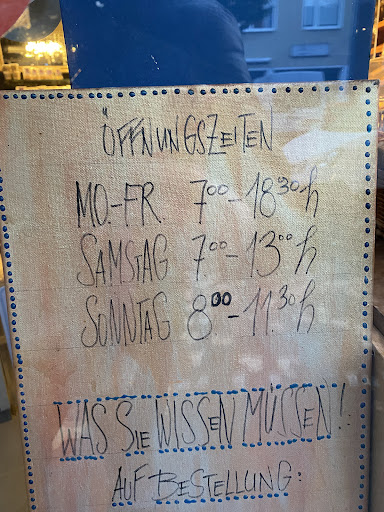 ÖFFNUNGSZEITEN
MO.-FR. 7⁰⁰-18³⁰h
SAMSTAG 7.⁰⁰-13⁰⁰h
SONNTAG 8⁰⁰-11.³⁰h
WAS SIE WISSEN MÜSSEN!
AUF BESTELLUNG: